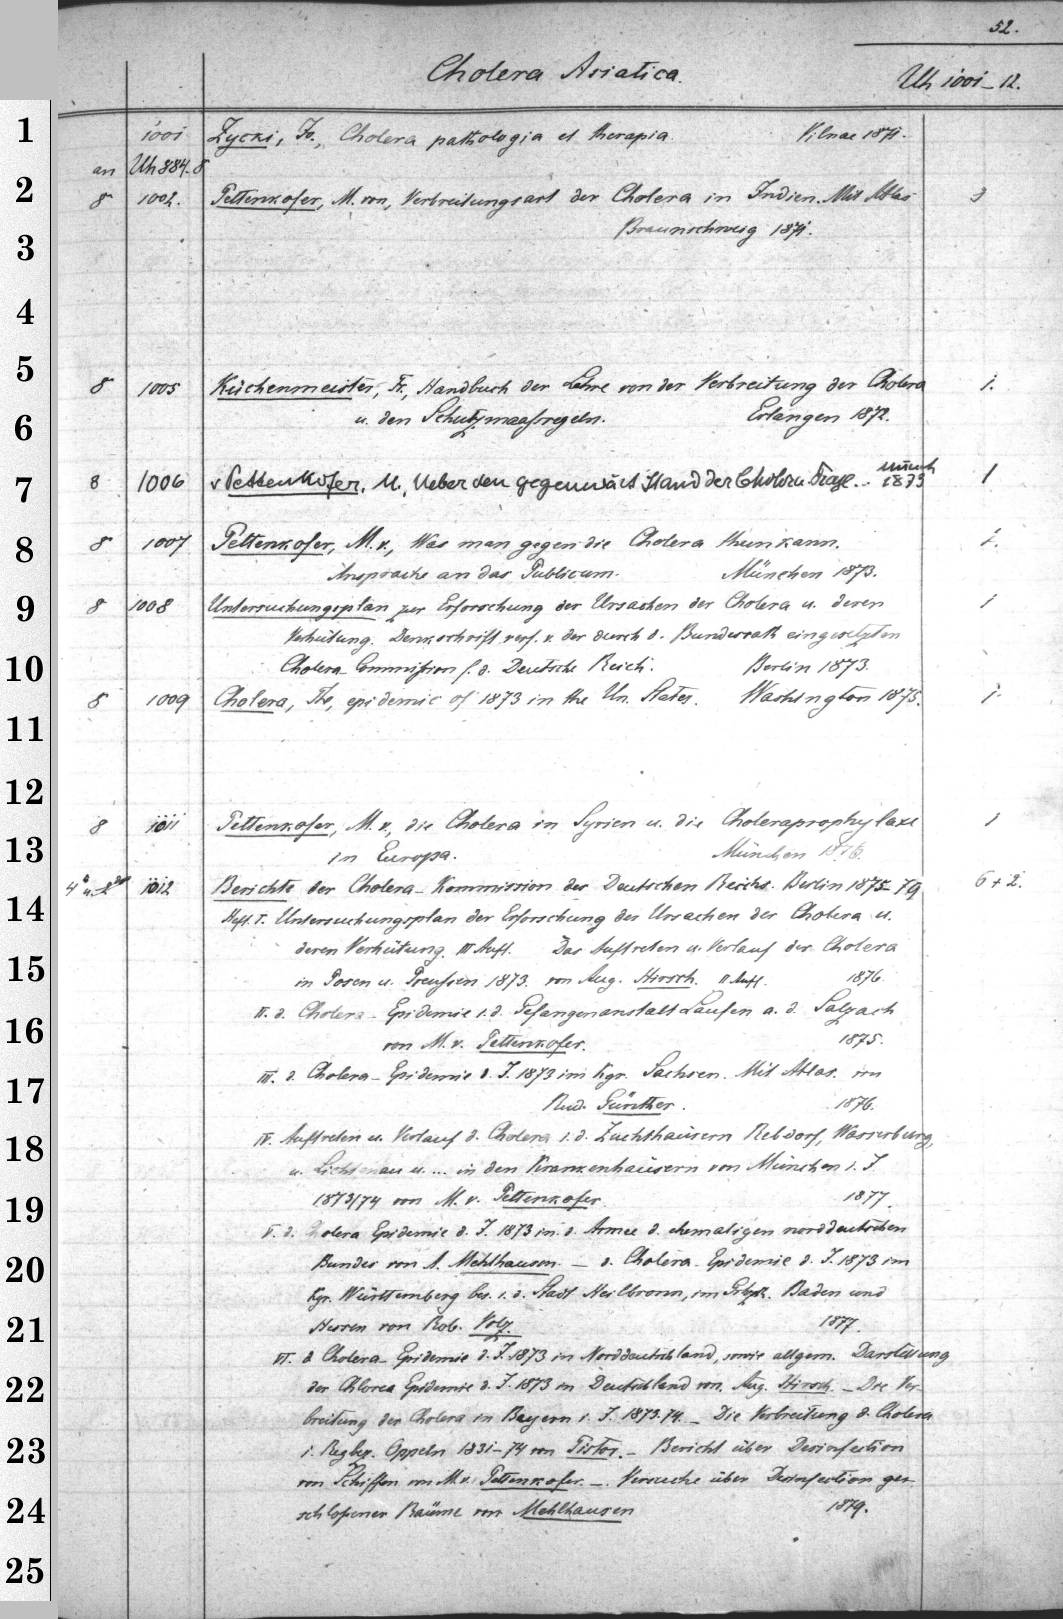 52.
Cholera Asiatica. Uh 1001-12.
1
1001 Zycki, Fr., Cholera pathologia et therapia. Vilnae 1871.
an Uh 884.8
2
8 1002. Pettenkofer, M. von, Verbreitungsart der Cholera in Indien. Mit Atlas 3
Braunschweig 1871.
3
4
5
8 1005 Küchenmeister, Fr., Handbuch der Lehre von der Verbreitung der Cholera 1.
6
u. den Schutzmaaßregeln. Erlangen 1872.
7
8 1006 v Pettenkofer, M., Ueber den gegenwärt Stand der Cholera Frage. Münch 1873 1
8
8 1007 Pettenkofer, M. v., Was man gegen die Cholera thun kann. 1.
Ansprache an das Publicum. München 1873.
9
8 1008 Untersuchungsplan zur Erforschung der Ursachen der Cholera u. deren 1
Verhütung. Denkschrift verf. v. der durch d. Bundesrath eingesetzten
10
Cholera-Commission f. d. Deutsche Reich. Berlin 1873.
8 1009 Cholera, The, epidemic of 1873 in the Un. States. Washington 1875. 1.
11
12
8 1011 Pettenkofer, M. v., die Cholera in Syrien u. die Choleraprophylaxe 1
13
in Europa. München
4° u. 2° 1012 Berichte der Cholera-Kommission des Deutschen Reichs. Berlin 1875-79 6+2.
14
Heft. I. Untersuchungsplan der Erforschung der Ursachen der Cholera u.
deren Verhütung. III Aufl. Das Auftreten u. Verlauf der Cholera
15
in Posen u. Preußen 1873. von Aug. Hirsch. II Aufl. 1876.
II. d. Cholera-Epidemie i. d. Gefangenanstalt Laufen a. d. Salzach
16
von M. v. Pettenkofer. 1875.
17
III. d. Cholera-Epidemie d. J. 1873 im Kgr. Sachsen. Mit Atlas. von
Rud. Günther. 1876.
18
IV. Auftreten u. Verlauf d. Cholera i. d. Zuchthäusern Rebdorf, Wasserburg,
u. Lichtenau u. ... in den Krankenhäusern von München i. J.
19
1873/74 von M. v. Pettenkofer. 1877.
V. d. Cholera Epidemie d. J. 1873 in d. Armee d. ehemaligen norddeutschen
20
Bundes von A. Mehlhausen. — d. Cholera-Epidemie d. J. 1873 im
Kgr. Württemberg bes. i. d. Stadt Heilbronn, im Grhzt. Baden und
21
Hessen von Rob. Volz. 1877.
VI. d Cholera-Epidemie d. J. 1873 in Norddeutschland, sowie allgem. Darstellung
22
der Chlorea Epidemie d. J. 1873 in Deutschland von. Aug. Hirsch. — Die Ver-
breitung der Cholera in Bayern i. J. 1873.74. — Die Verbreitung d. Cholera
23
i. Regbz. Oppeln 1831-74 von Pistor. — Bericht über Desinfection
von Schiffen von M. v. Pettenkofer. — Versuche über Desinfection ges-
24
schloßener Räume von Mehlhausen 1879.
25